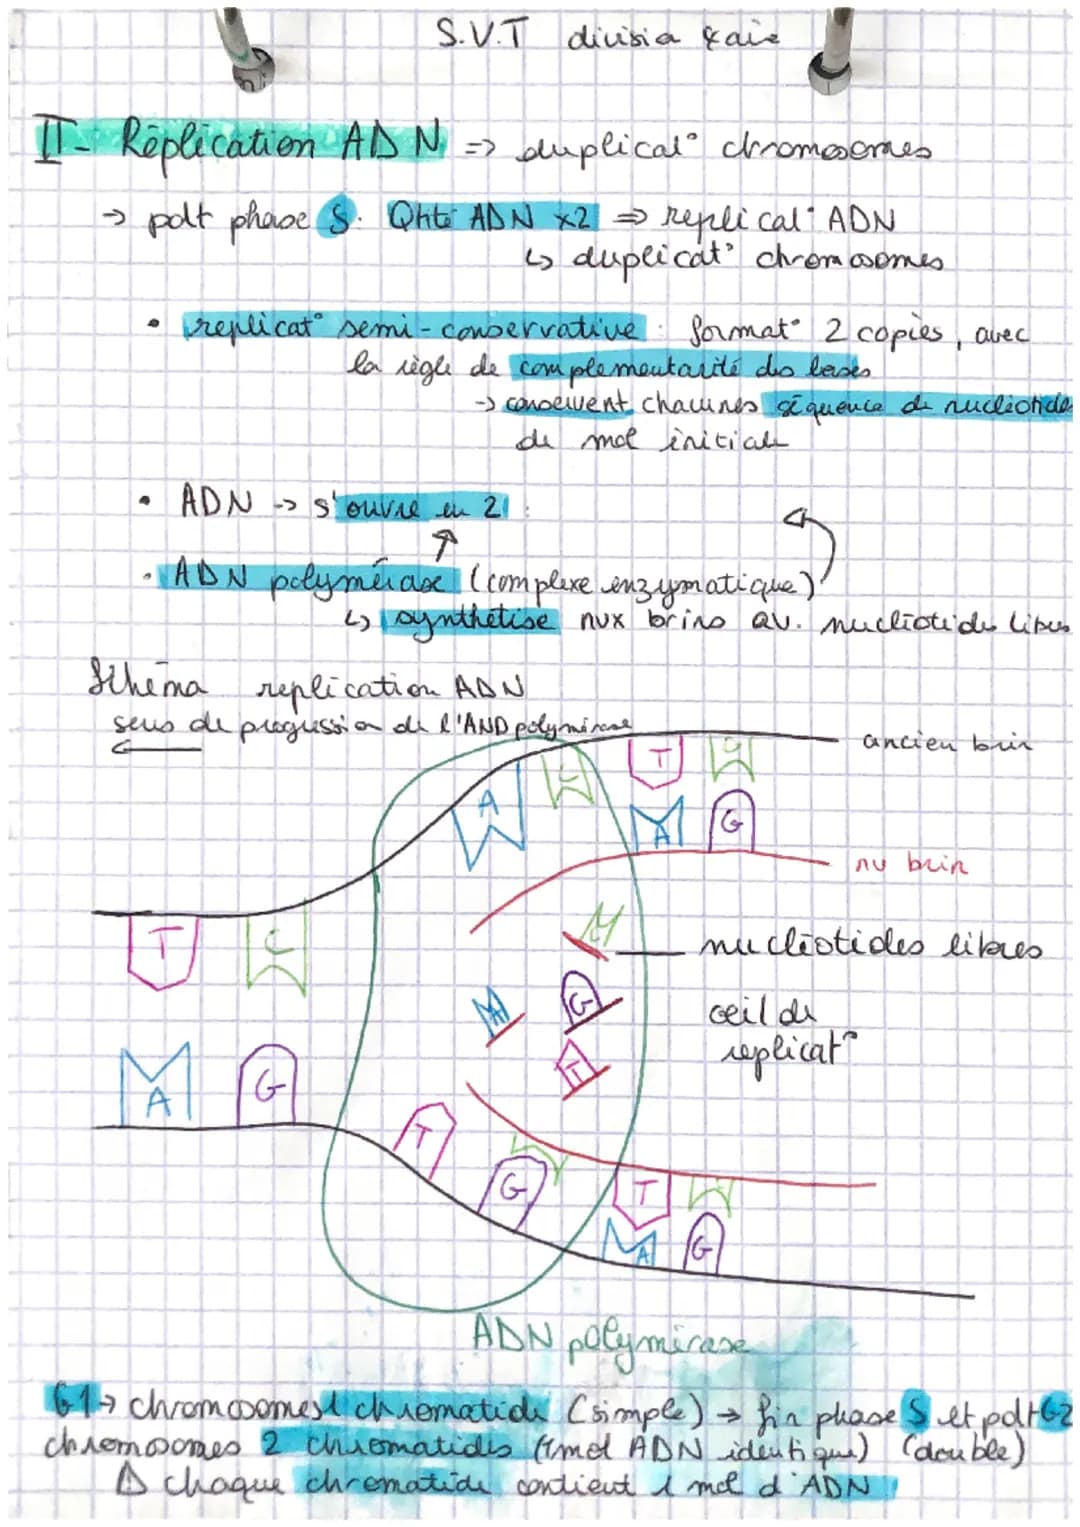 S.V.T divisia
II- Réplication ADN => duplicat° chromosomes
→ pdt phase S. Qtité ADN x2 => replicat° ADN
↳ duplicat° chromosomes
• replicat° semi-conservative : format° 2 copies, avec
la règle de complementarité des bases
→ conservent chacunes séquence de nucléotides
de mol initiale
• ADN → s'ouvre en 2 :
• ADN polymérase (complexe enzymatique)
↳ synthétise nvx brins av. nucléotides libres
Schéma replication ADN
sens de progression de l'AND polymérase
ancien brin
T C
A C
A G
nv brin
T C
C
nucléotides libres
A G
T
oeil de
replicat°
A G
T G C
T C
A G
ADN polymérase
G1 → chromosomes 1 chromatide (simple) → fin phase S et pdt G2
chromosomes 2 chromatides (1 mol ADN identique) (double)
⚠ chaque chromatide contient 1 mol d'ADN